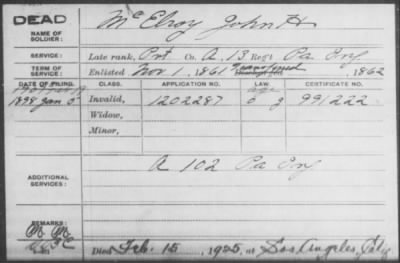 DEAD
McElroy John H
NAME OF SOLDIER:
SERVICE: Late rank, Pvt Co. A, 13 Reg't Pa Inf
TERM OF SERVICE: Enlisted Nov 1, 1861 Transferred, 1862
DATE OF FILING. CLASS. APPLICATION NO. LAW. CERTIFICATE NO.
1898 Jan 5 Invalid, 1202287 991222
Widow,
Minor,
ADDITIONAL SERVICES: A 102 Pa Inf
REMARKS:
Died Feb. 15, 1925, at Los Angeles, Calif